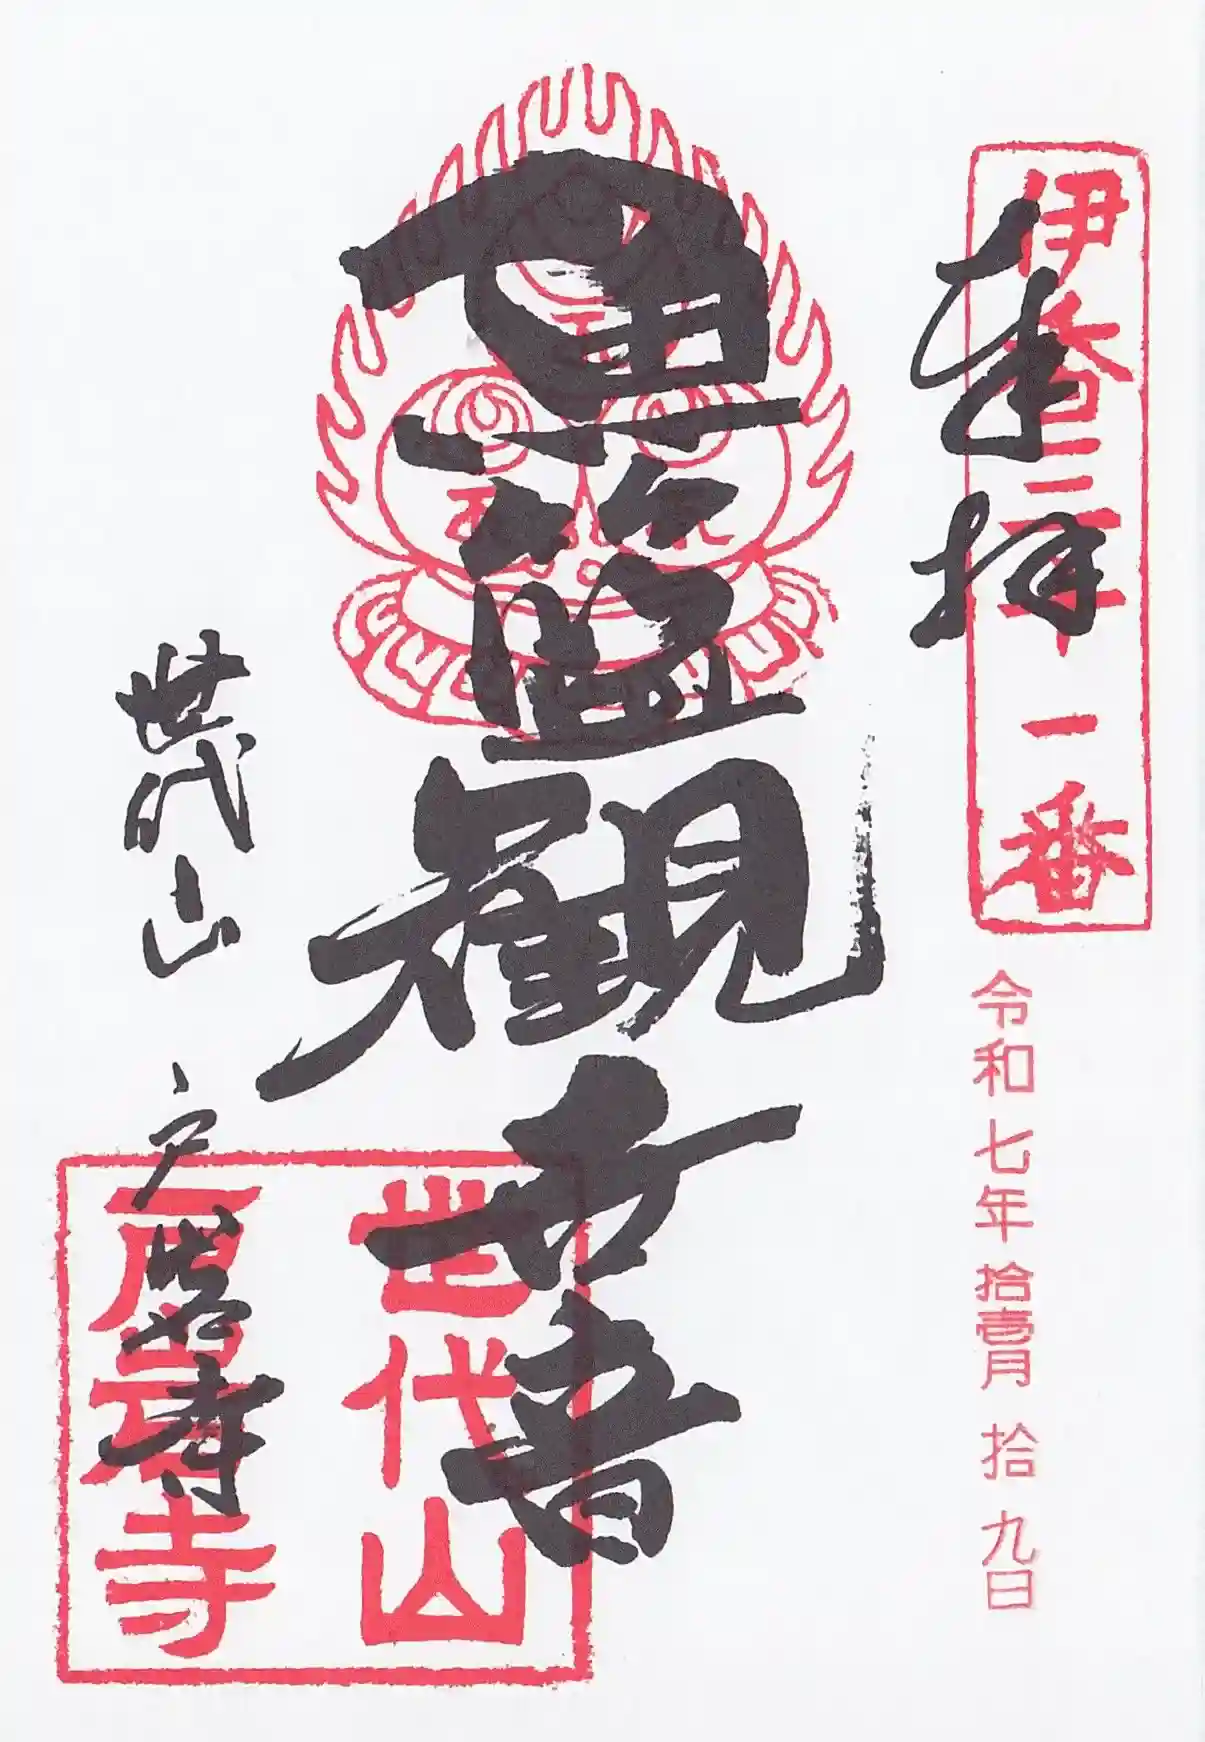 奉拝
伊香三十一番
令和七年拾壱月拾九日
魚籃観世音
世代山
世代山戸岩寺
戸岩寺